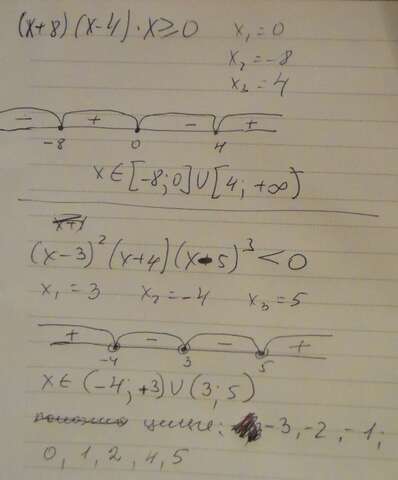 (x+8)(x-4)·x≥0 x₁=0
x₂=-8
x₃=4
- + - +
-8 0 4
x∈[-8;0]∪[4;+∞)
(x-3)²(x+4)(x-5)³<0
x₁=3 x₂=-4 x₃=5
+ - - +
-4 3 5
x∈(-4;+3)∪(3;5)
целые: -3,-2,-1;
0,1,2,4,5